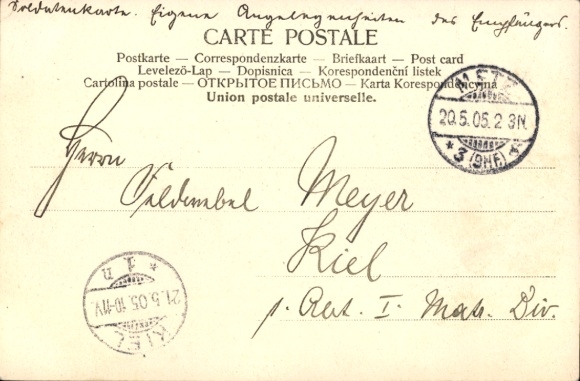 Soldatenkarte. Eigene Angelegenheiten des Empfängers.
CARTE POSTALE
Postkarte — Correspondenzkarte — Briefkaart — Post card
Levelező-Lap — Dopisnica — Korespondenční listek
Cartolina postale — ОТКРЫТОЕ ПИСЬМО — Karta Korespondencyjna
Union postale universelle.
METZ
20.5.05. 2 3N.
* 3 (BHF) *
Herrn
Feldwebel Meyer
Kiel
I. Matr. Div.
KIEL
21.5.05.10-11V.
* 1 n